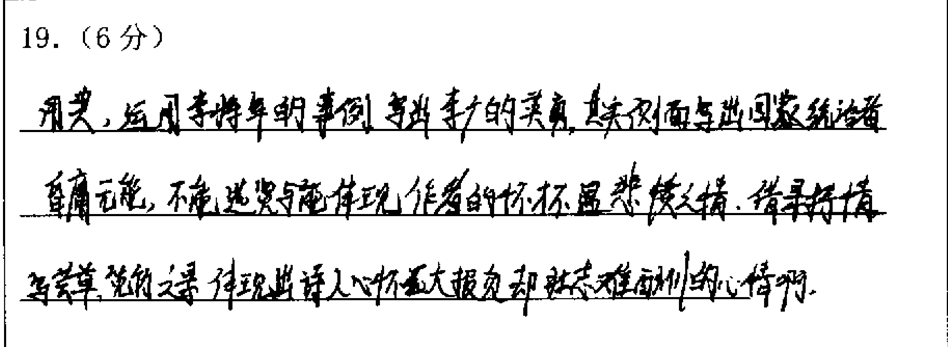 19.（6分）
用典，运用李将军的事例写出李广的英勇，其实侧面写出国家统治者
昏庸无能，不能选贤与能体现作者的怀才不遇悲愤之情.借景抒情
写荒草、之景体现出诗人心怀远大报负却壮志难的心情啊.